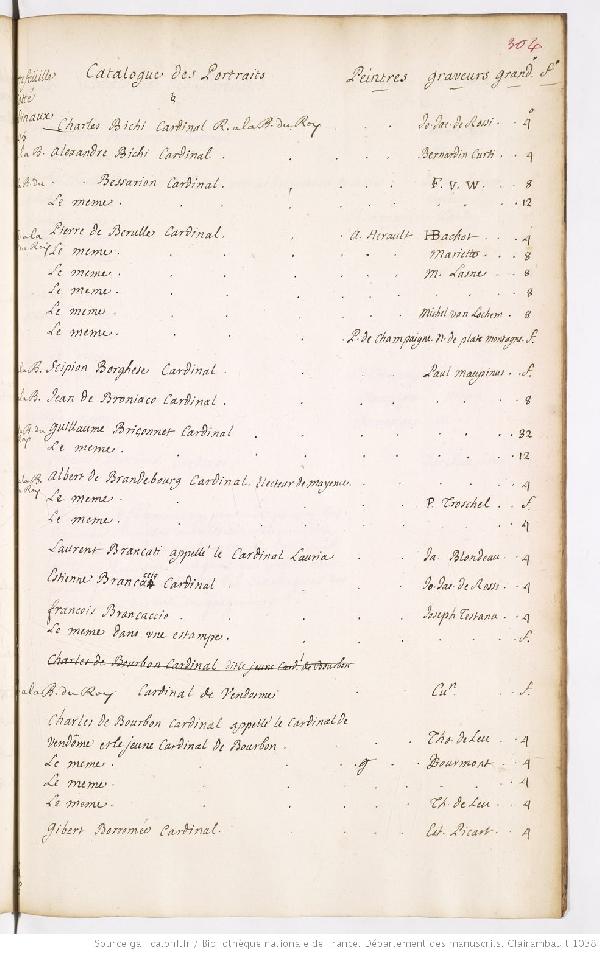 304
Catalogue des Portraits Peintres graveurs grandr fo
Charles Bichi Cardinal R. a la B. du Roy . . Jo. Jac. de Rossi . . 4o
la B. Alexandre Bichi Cardinal . . . . Bernardin Curti . 4
la B. du Bessarion Cardinal . . . . F. V. W. . . 8
Le meme . . . . . . . . 12
a la Pierre de Berulle Cardinal . . A. Herault Bachot . . 4
du Roy Le meme . . . . Mariette . . 8
Le meme . . . . M. Lasne . . 8
Le meme . . . . . . . 8
Le meme . . . . Michel van Lochem . 8
Le meme . . . P. de Champaigne N. de plate montagne f.
la B. Scipion Borghese Cardinal . . . Paul maupinus . f.
la B. Jean de Broniaco Cardinal . . . . . 8
la B. du Roy guillaume Briçonnet Cardinal . . . . . 32
Le meme . . . . . . . 12
a la B. du Roy Albert de Brandebourg Cardinal Electeur de mayence . . . . 4
Le meme . . . . P. Troschel . f.
Le meme . . . . . . . 4
Laurent Brancati appellé le Cardinal Lauria . . Ja. Blondeau . 4
Estienne Brancaccio Cardinal . . . Jo. Jac. de Rossi . . 4
francois Brancaccio . . . . Joseph Testana . 4
Le meme dans vne estampe . . . . . f.
Charles de Bourbon Cardinal dit le jeune Card.l de Bourbon
a la B. du Roy Cardinal de Vendosme . . . f.
Charles de Bourbon Cardinal appellé le Cardinal de
Vendôme et le jeune Cardinal de Bourbon . . . Tho. de Leu . . 4
Le meme . . . . Bourmont . . 4
Le meme . . . . . . . 4
Le meme . . . . Th. de Leu . . 4
Gibert Borromée Cardinal . . . . Est. Picart . . 4
Source gallica.bnf.fr / Bibliothèque nationale de France. Département des manuscrits. Clairambault 1038